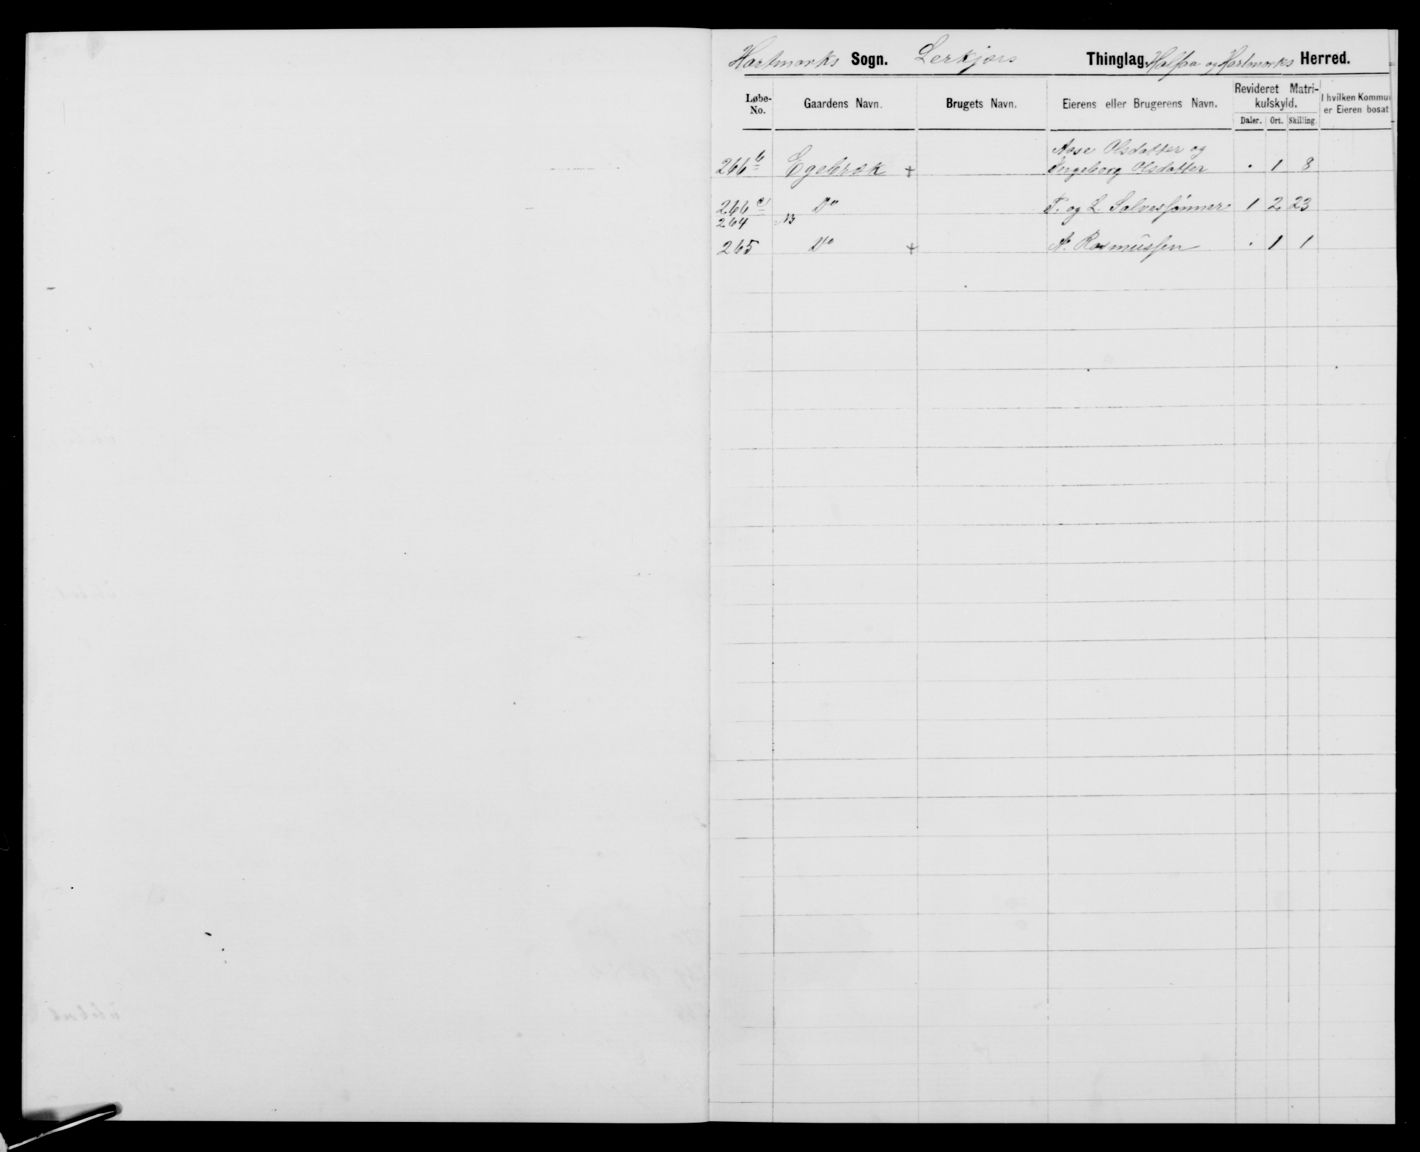 Hartmarks Sogn. Lerkjærs Thinglag, Halsaa og Hartmarks Herred.
Løbe-No. Gaardens Navn. Brugets Navn. Eierens eller Brugerens Navn. Revideret Matrikulskyld. I hvilken Kommu er Eieren bosat
Daler. Ort. Skilling.
Aase Olsdatter og
266 b Egebræk + Ingeborg Olsdatter . 1 8
266 c Do T. og L. Salvessønner 1 2 23
264
265 Do + A. Rasmussen . 1 1